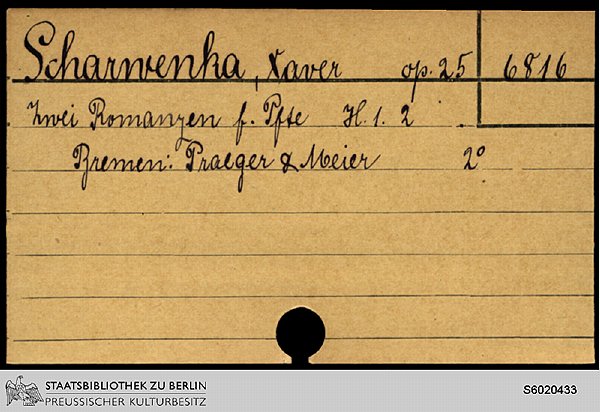 Scharwenka, Xaver op. 25 6816
Zwei Romanzen f. Pfte H. 1. 2
Bremen: Praeger & Meier 2°
STAATSBIBLIOTHEK ZU BERLIN
PREUSSISCHER KULTURBESITZ
S6020433